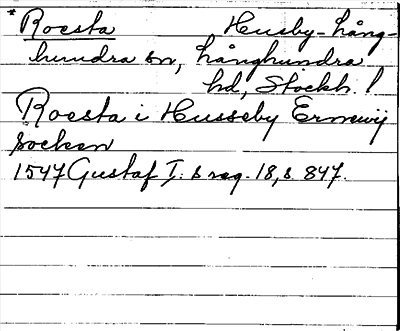 * Roesta Husby-Lång-
hundra sn, Långhundra
hd, Stockh. l
Roesta i Husseby Ermewij
socken
1547 Gustaf I:s reg. 18, s. 847.